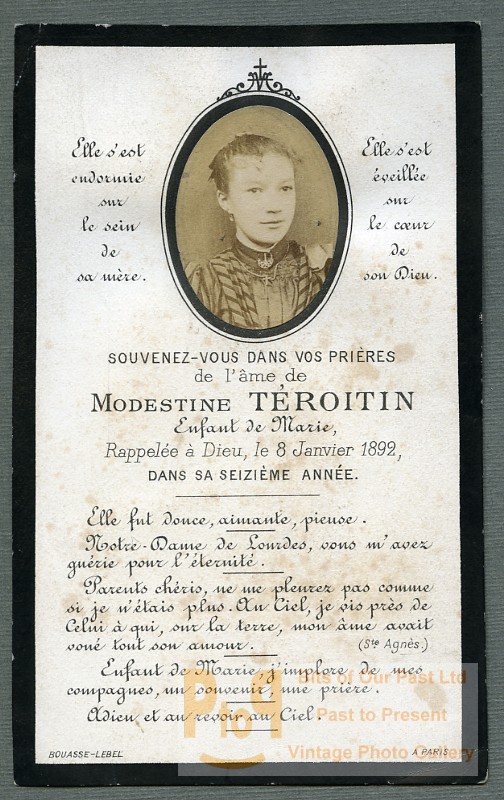 Elle s'est
endormie
sur
le sein
de
sa mère.
Elle s'est
éveillée
sur
le cœur
de
son Dieu.
SOUVENEZ-VOUS DANS VOS PRIÈRES
de l'âme de
MODESTINE TÉROITIN
Enfant de Marie,
Rappelée à Dieu, le 8 Janvier 1892,
DANS SA SEIZIÈME ANNÉE.
Elle fut douce, aimante, pieuse.
Notre-Dame de Lourdes, vous m'avez
guérie pour l'éternité.
Parents chéris, ne me pleurez pas comme
si je n'étais plus. Au Ciel, je vis près de
Celui à qui, sur la terre, mon âme avait
voué tout son amour. (Ste Agnès.)
Enfant de Marie, j'implore de mes
compagnes, un souvenir, une prière.
Adieu et au revoir au Ciel.
BOUASSE-LEBEL A PARIS
Bits of Our Past Ltd
Past to Present
Vintage Photo Gallery